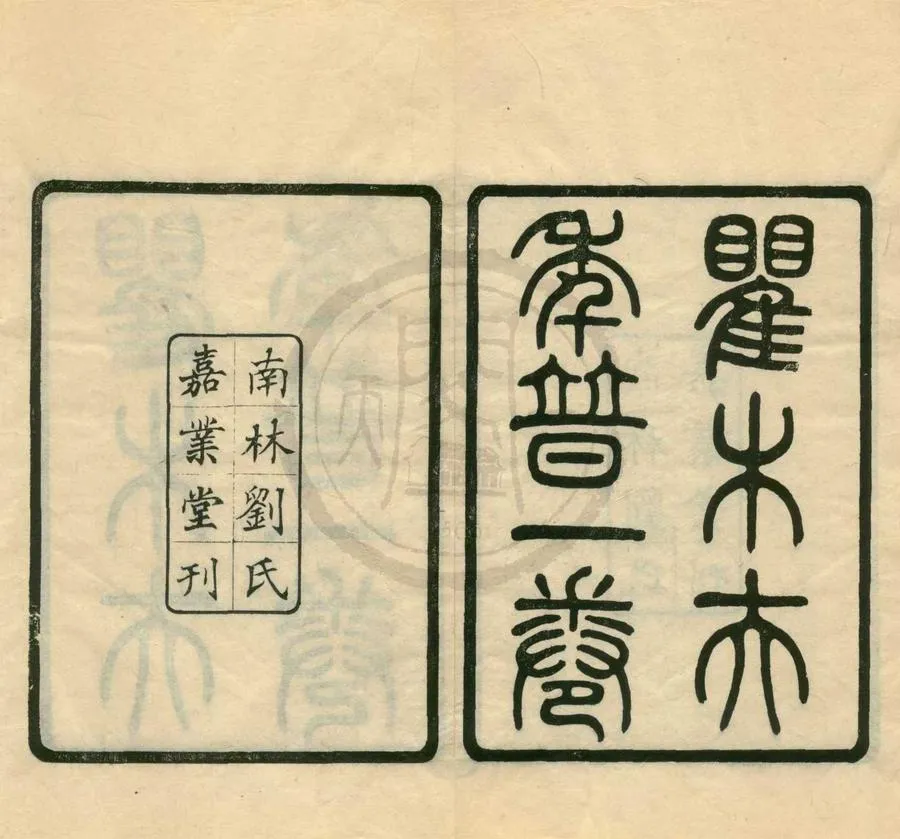 瞿木夫
年普一卷
南林劉氏
嘉業堂刊